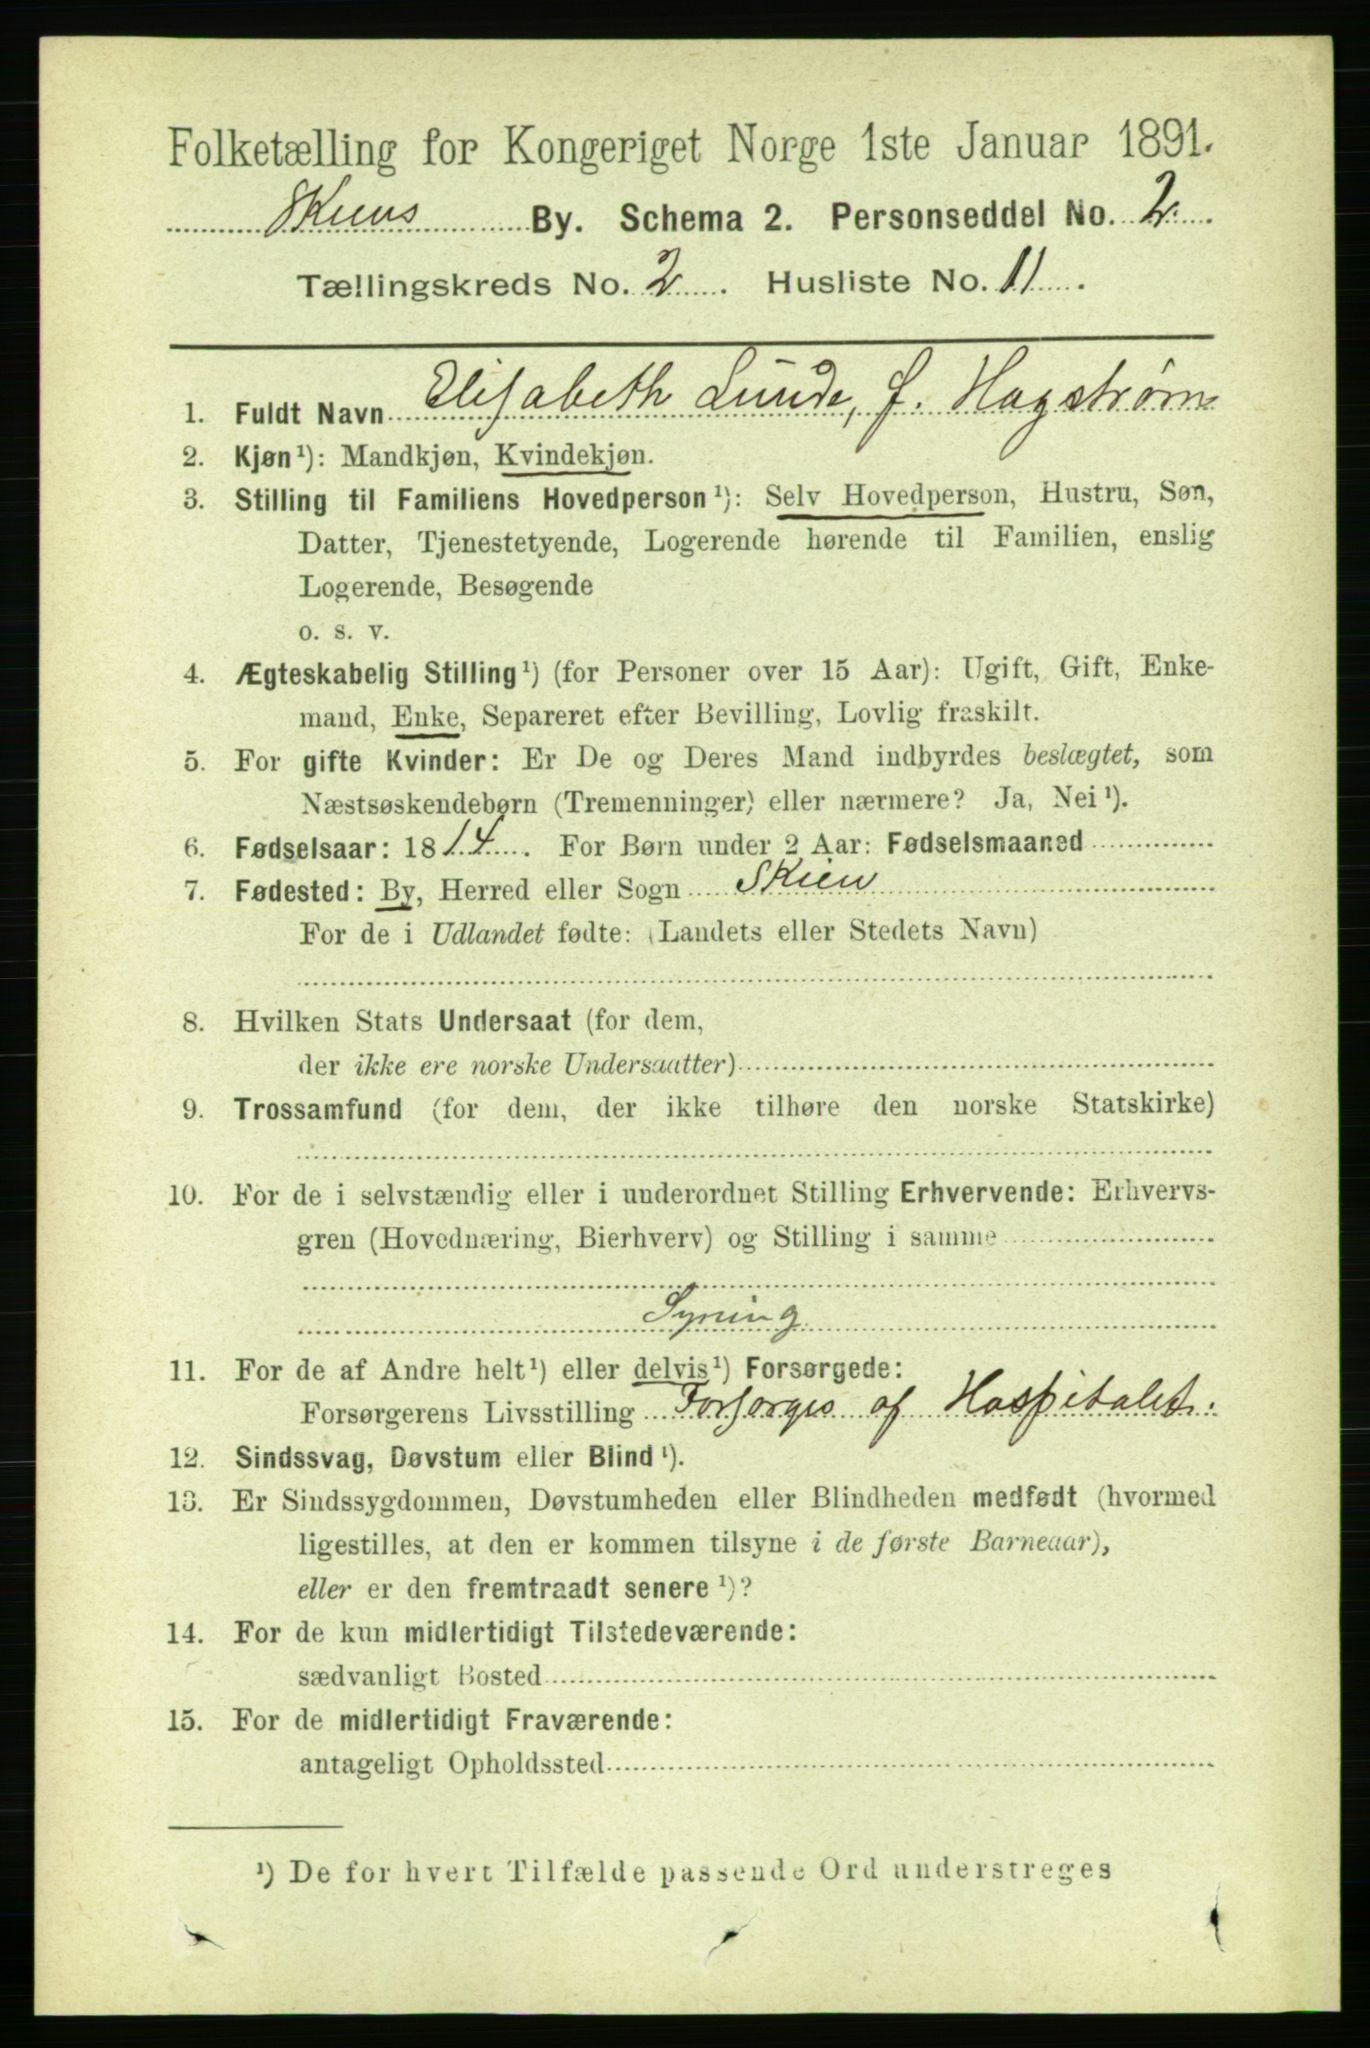 Folketælling for Kongeriget Norge 1ste Januar 1891.
Skiens By. Schema 2. Personseddel No. 2.
Tællingskreds No. 2. Husliste No. 11.
1. Fuldt Navn Elisabeth Lunde, f. Hagstrøm
2. Kjøn¹): Mandkjøn, Kvindekjøn.
3. Stilling til Familiens Hovedperson¹): Selv Hovedperson, Hustru, Søn,
Datter, Tjenestetyende, Logerende hørende til Familien, enslig
Logerende, Besøgende
o. s. v.
4. Ægteskabelig Stilling¹) (for Personer over 15 Aar): Ugift, Gift, Enke-
mand, Enke, Separeret efter Bevilling, Lovlig fraskilt.
5. For gifte Kvinder: Er De og Deres Mand indbyrdes beslægtet, som
Næstsøskendebørn (Tremenninger) eller nærmere? Ja, Nei¹).
6. Fødselsaar: 1814. For Børn under 2 Aar: Fødselsmaaned
7. Fødested: By, Herred eller Sogn Skien
For de i Udlandet fødte: (Landets eller Stedets Navn)
8. Hvilken Stats Undersaat (for dem,
der ikke ere norske Undersaatter)
9. Trossamfund (for dem, der ikke tilhøre den norske Statskirke)
10. For de i selvstændig eller i underordnet Stilling Erhvervende: Erhvervs-
gren (Hovednæring, Bierhverv) og Stilling i samme
Syning
11. For de af Andre helt¹) eller delvis¹) Forsørgede:
Forsørgerens Livsstilling Forsørges af Hospitalet.
12. Sindssvag, Døvstum eller Blind¹).
13. Er Sindssygdommen, Døvstumheden eller Blindheden medfødt (hvormed
ligestilles, at den er kommen tilsyne i de første Barneaar),
eller er den fremtraadt senere¹)?
14. For de kun midlertidigt Tilstedeværende:
sædvanligt Bosted
15. For de midlertidigt Fraværende:
antageligt Opholdssted
¹) De for hvert Tilfælde passende Ord understreges